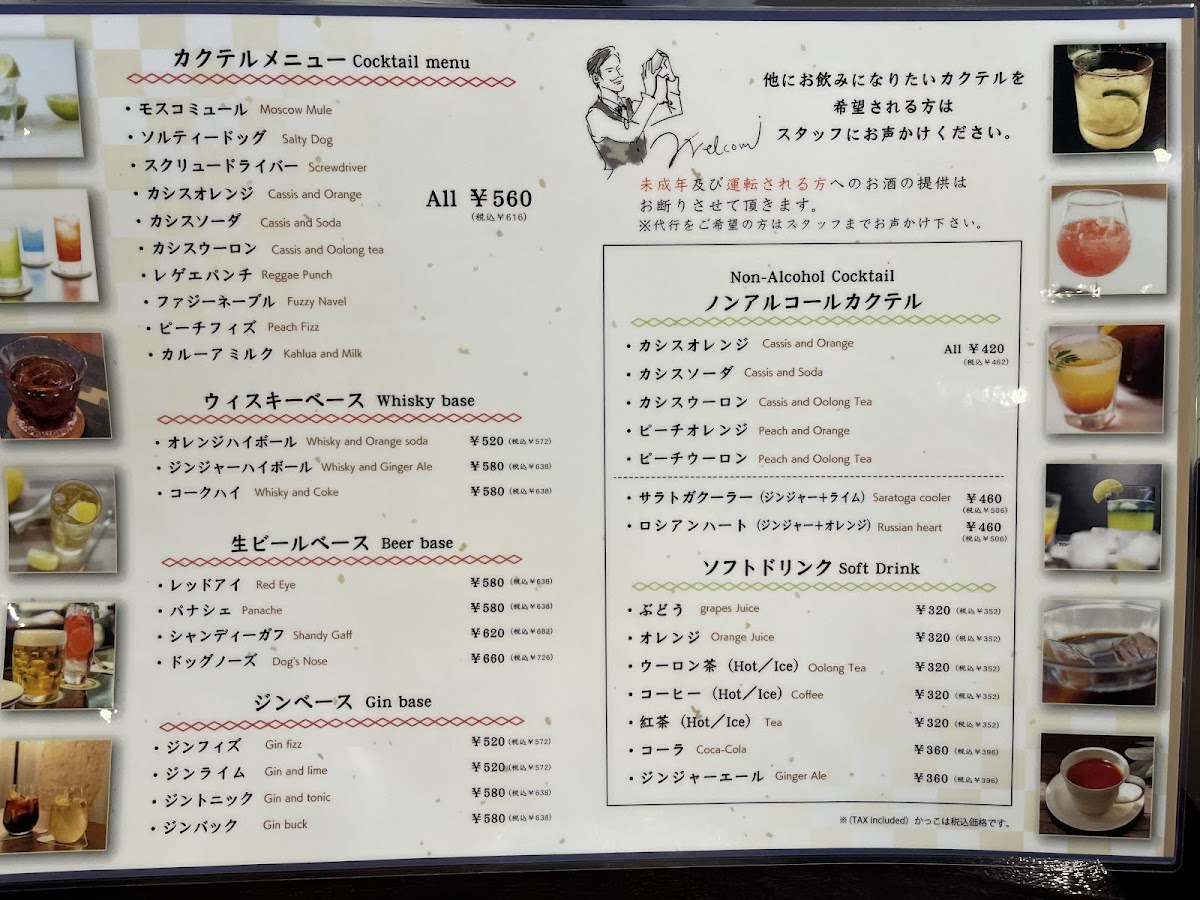 カクテルメニュー Cocktail menu
・モスコミュール Moscow Mule
・ソルティードッグ Salty Dog
・スクリュードライバー Screwdriver
・カシスオレンジ Cassis and Orange
・カシスソーダ Cassis and Soda
・カシスウーロン Cassis and Oolong tea
・レゲエパンチ Reggae Punch
・ファジーネーブル Fuzzy Navel
・ピーチフィズ Peach Fizz
・カルーアミルク Kahlua and Milk
All ¥560
(税込¥616)
ウィスキーベース Whisky base
・オレンジハイボール Whisky and Orange soda ¥520 (税込¥572)
・ジンジャーハイボール Whisky and Ginger Ale ¥580 (税込¥638)
・コークハイ Whisky and Coke ¥580 (税込¥638)
生ビールベース Beer base
・レッドアイ Red Eye ¥580 (税込¥638)
・パナシェ Panache ¥580 (税込¥638)
・シャンディーガフ Shandy Gaff ¥620 (税込¥682)
・ドッグノーズ Dog's Nose ¥660 (税込¥726)
ジンベース Gin base
・ジンフィズ Gin fizz ¥520 (税込¥572)
・ジンライム Gin and lime ¥520 (税込¥572)
・ジントニック Gin and tonic ¥580 (税込¥638)
・ジンバック Gin buck ¥580 (税込¥638)
Welcom
他にお飲みになりたいカクテルを
希望される方は
スタッフにお声かけください。
未成年及び運転される方へのお酒の提供は
お断りさせて頂きます。
※代行をご希望の方はスタッフまでお声かけ下さい。
Non-Alcohol Cocktail
ノンアルコールカクテル
・カシスオレンジ Cassis and Orange All ¥420
(税込¥462)
・カシスソーダ Cassis and Soda
・カシスウーロン Cassis and Oolong Tea
・ピーチオレンジ Peach and Orange
・ピーチウーロン Peach and Oolong Tea
・サラトガクーラー(ジンジャー+ライム) Saratoga cooler ¥460
(税込¥506)
・ロシアンハート(ジンジャー+オレンジ) Russian heart ¥460
(税込¥506)
ソフトドリンク Soft Drink
・ぶどう grapes Juice ¥320 (税込¥352)
・オレンジ Orange Juice ¥320 (税込¥352)
・ウーロン茶(Hot/Ice) Oolong Tea ¥320 (税込¥352)
・コーヒー(Hot/Ice) Coffee ¥320 (税込¥352)
・紅茶(Hot/Ice) Tea ¥320 (税込¥352)
・コーラ Coca-Cola ¥360 (税込¥396)
・ジンジャーエール Ginger Ale ¥360 (税込¥396)
※(TAX included) かっこは税込価格です。